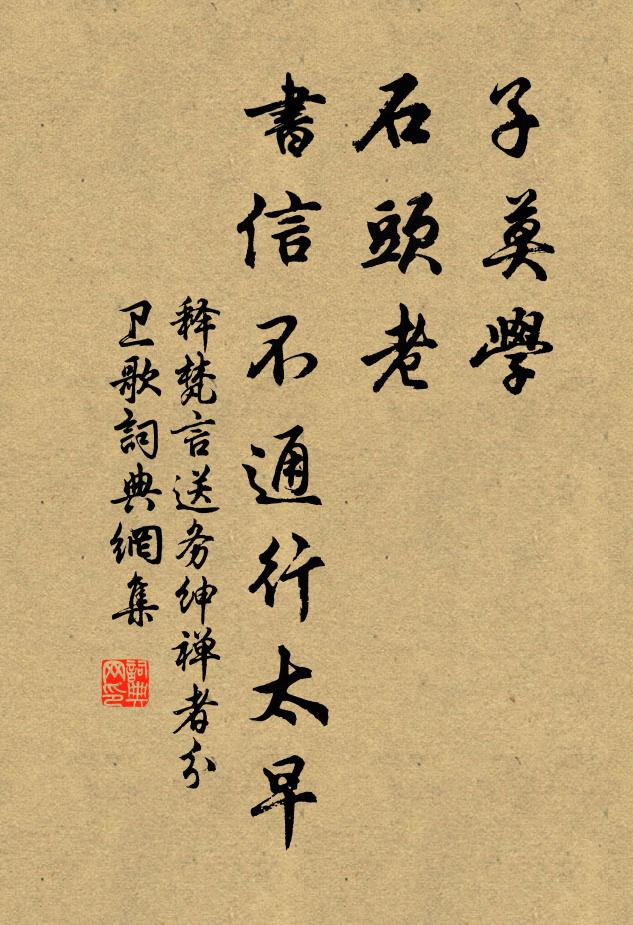 子莫學
石頭老
書信不通行太早
释梵言送务绅禅者分
卫歌詞典網集
詞典网印